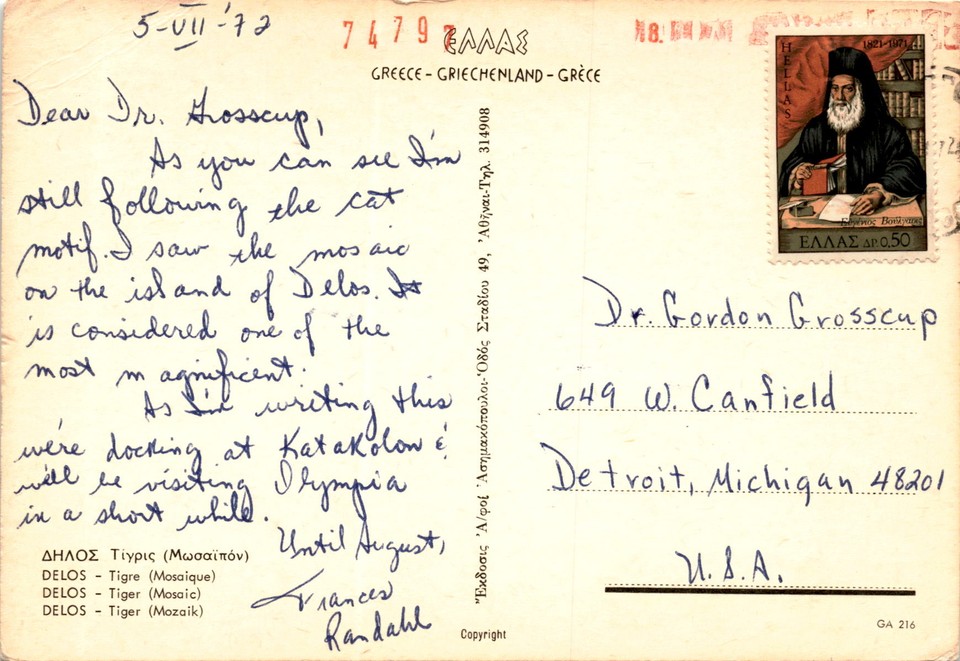 5-VII-'72
74797
ΕΛΛΑΣ
GREECE – GRIECHENLAND – GRÈCE
Dear Dr. Grosscup,
As you can see I'm
still following the cat
motif. I saw the mosaic
on the island of Delos. It
is considered one of the
most magnificent.
As I'm writing this
we're docking at Katakolon &
we'll be visiting Olympia
in a short while.
Until August,
Frances
Randahl
ΔΗΛΟΣ Τίγρις (Μωσαϊπόν)
DELOS – Tigre (Mosaique)
DELOS – Tiger (Mosaic)
DELOS – Tiger (Mozaik)
Ἔκδοσις Ἀ/φοί Ἀσημακόπουλοι-Ὁδός Σταδίου 49, Ἀθῆναι-Τηλ. 314908
Copyright
18.
HELLAS
1821-1971
Εὐγένιος Βούλγαρις
ΕΛΛΑΣ ΔΡ.0,50
Dr. Gordon Grosscup
649 W. Canfield
Detroit, Michigan 48201
U.S.A.
GA 216